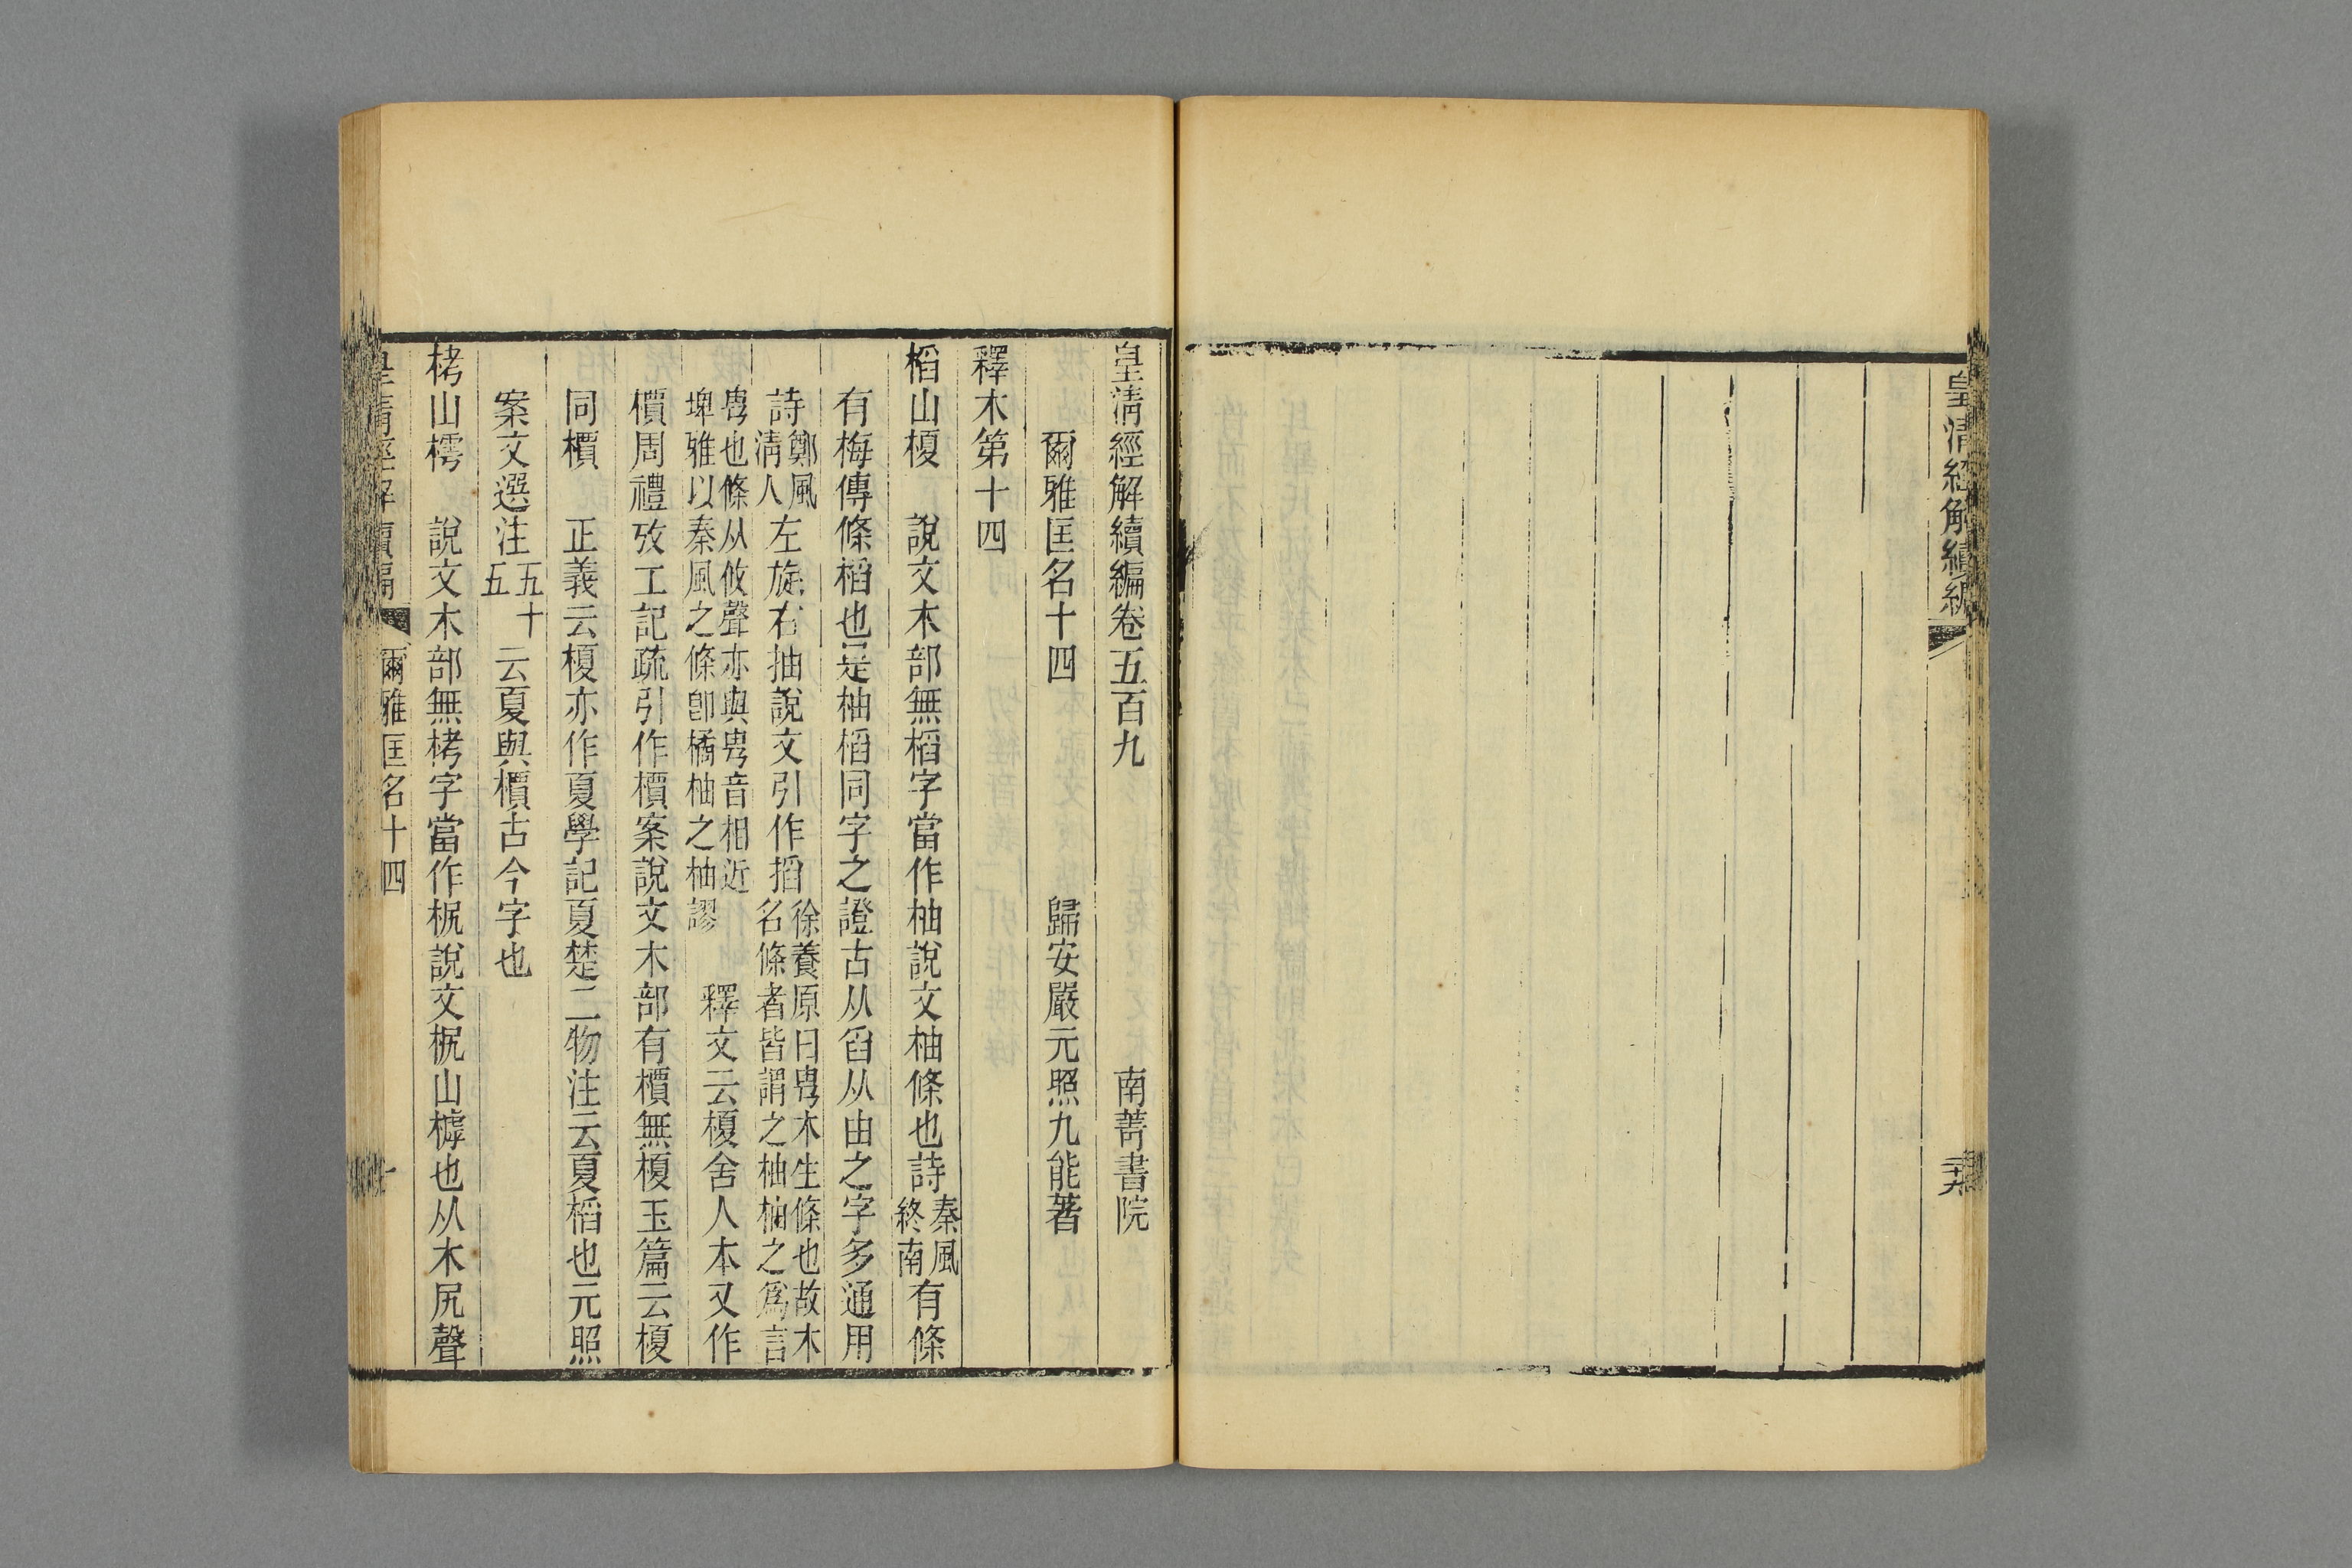 皇清經解續編
二十九
皇清經解續編卷五百九 南菁書院
爾雅匡名十四 歸安嚴元照九能著
釋木第十四
槄山榎 說文木部無槄字當作柚說文柚條也詩秦風終南有條
有梅傳條槄也是柚槄同字之證古从舀从由之字多通用
詩鄭風清人左旋右抽說文引作搯徐養原曰甹木生條也故木名條者皆謂之柚柚之爲言
甹也條从攸聲亦與甹音相近埤雅以秦風之條卽橘柚之柚謬 釋文云榎舍人本又作
檟周禮攷工記疏引作檟案說文木部有檟無榎玉篇云榎
同檟 正義云榎亦作夏學記夏楚二物注云夏槄也元照
案文選注五十五云夏與檟古今字也
栲山樗 說文木部無栲字當作㧡說文㧡山樗也从木尻聲
皇清經解續編 爾雅匡名十四 一